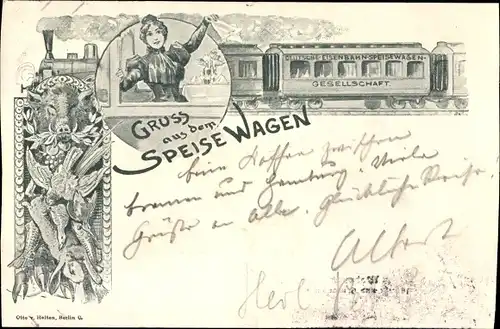 DEUTSCHE-EISENBAHN-SPEISEWAGEN-
GESELLSCHAFT.
GRUSS
aus dem
SPEISE WAGEN
beim Kaffee zwischen
Bremen und Hamburg. Viele
Grüße an Alle, glückliche Reise.
Albert
Otto v. Holten, Berlin C.